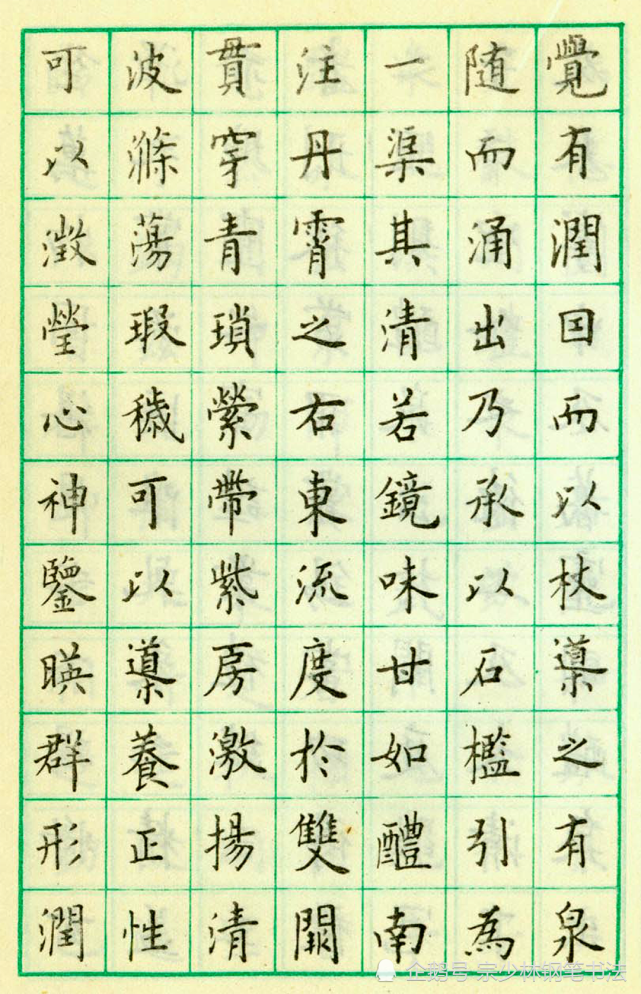 覺有潤因而以杖導之有泉
随而涌出乃承以石檻引為
一渠其清若鏡味甘如醴南
注丹霄之右東流度於雙闕
貫穿青瑣縈帶紫房激揚清
波滌蕩瑕穢可以導養正性
可以澂瑩心神鑒暎群形潤
企鹅号 宗少林钢笔书法